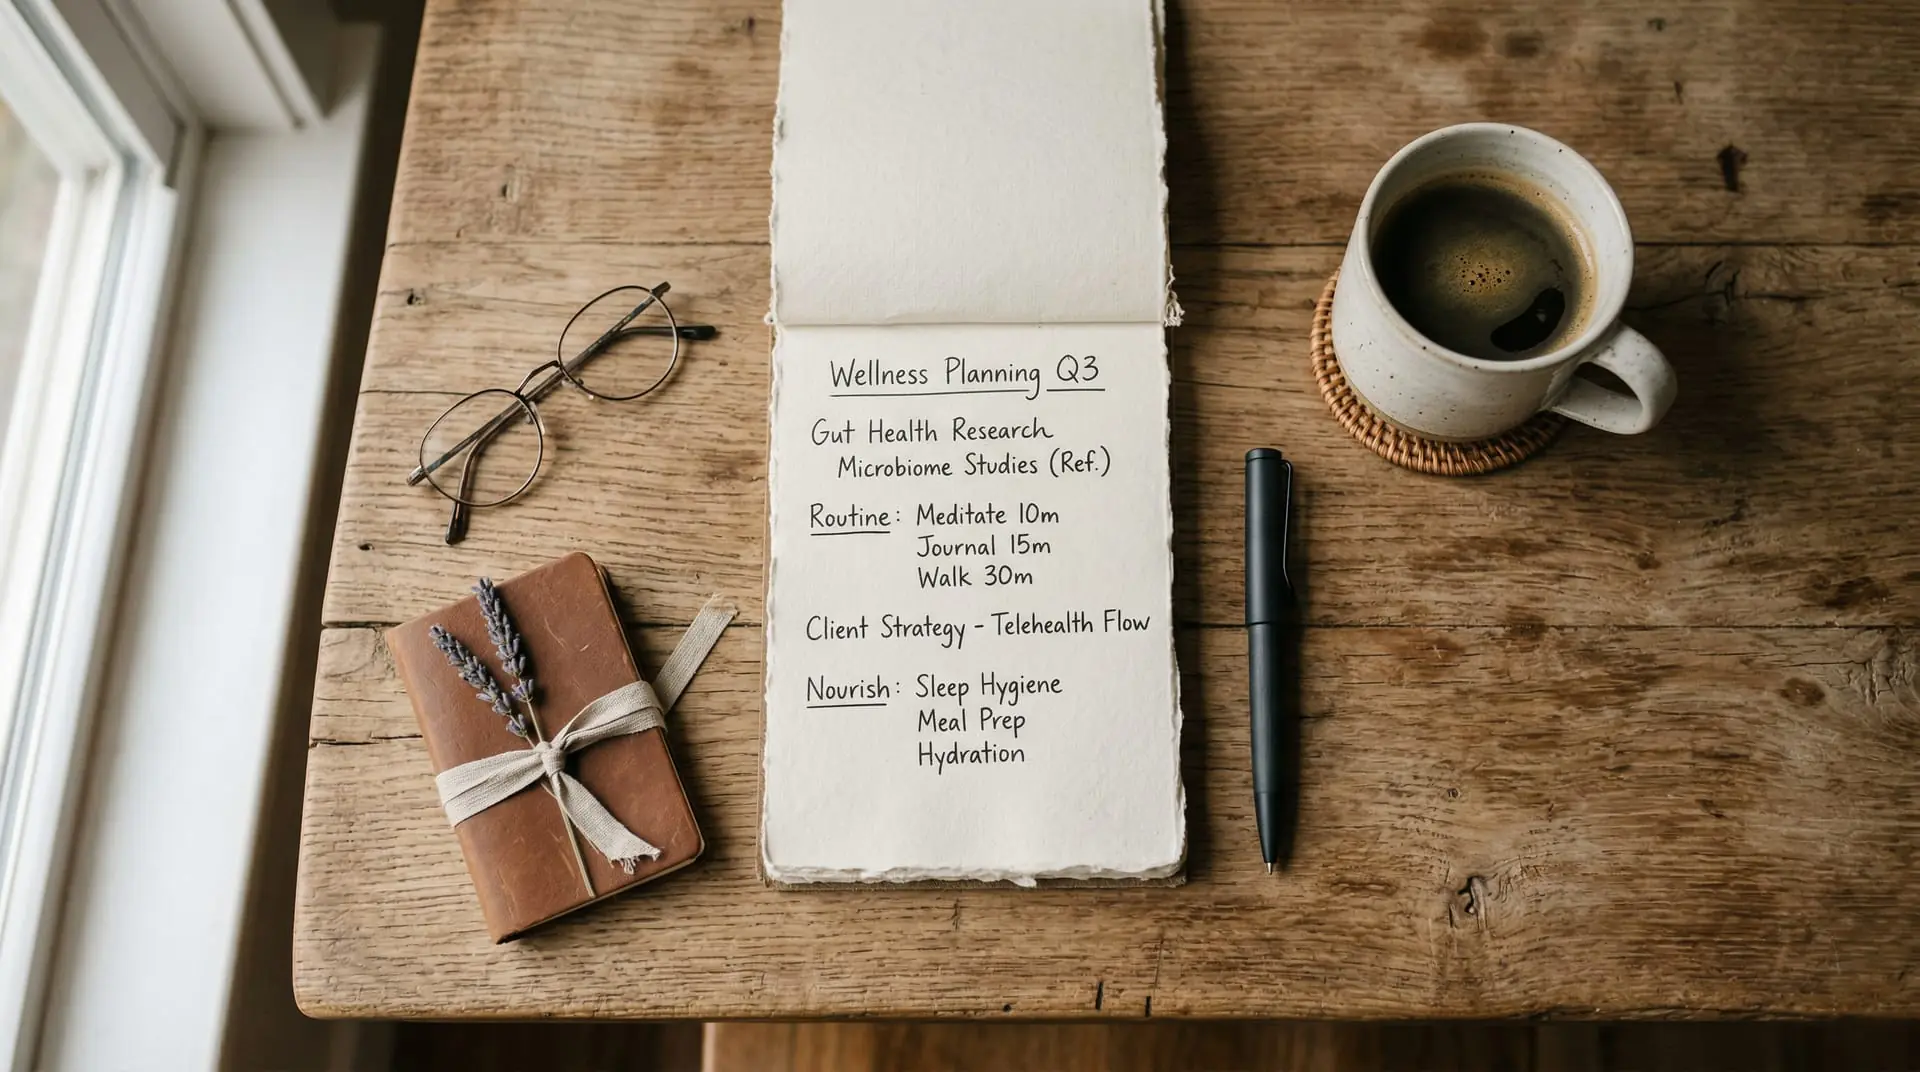 Wellness Planning Q3
Gut Health Research
Microbiome Studies (Ref.)
Routine: Meditate 10m
Journal 15m
Walk 30m
Client Strategy - Telehealth Flow
Nourish: Sleep Hygiene
Meal Prep
Hydration